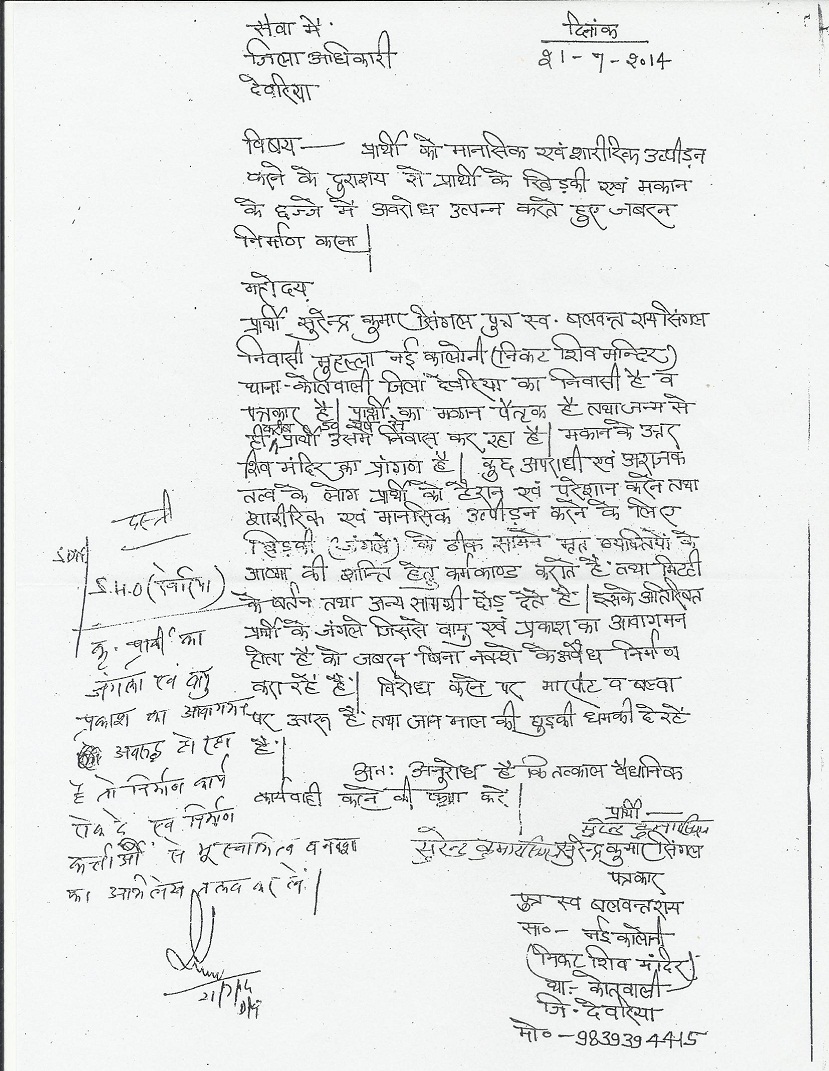 सेवा में.
जिला अधिकारी
देवरिया
दिनांक
२१-७-२०14
विषय — प्रार्थी को मानसिक एवं शारीरिक उत्पीड़न
करने के दुराशय से प्रार्थी के खिड़की एवं मकान
के छज्जे में अवरोध उत्पन्न करते हुए जबरन
निर्माण करना|
महोदय,
प्रार्थी सुरेन्द्र कुमार सिंगल पुत्र स्व. बलवन्त राय सिंगल
निवासी मुहल्ला नई कालोनी (निकट शिव मन्दिर)
थाना-कोतवाली जिला देवरिया का निवासी है व
पत्रकार है| प्रार्थी का मकान पैतृक है तथा जन्म से
करीब वर्ष से
ही प्रार्थी उसमें निवास कर रहा है| मकान के उत्तर
शिव मंदिर का प्रांगण है| कुछ अपराधी एवं अराजक
तत्व के लोग प्रार्थी को हैरान एवं परेशान करने तथा
शारीरिक एवं मानसिक उत्पीड़न करने के लिए
खिड़की (जंगले) के ठीक सामने मृत व्यक्तियों के
आत्मा की शान्ति हेतु कर्मकाण्ड कराते हैं. तथा मिट्टी
के बर्तन तथा अन्य सामग्री छोड़ देते है| इसके अतिरिक्त
प्रार्थी के जंगले जिससे वायु एवं प्रकाश का आवागमन
होता है को जबरन बिना नक्शे के अवैध निर्माण
करा रहें हैं| विरोध करने पर मारपीट व बल्वा
पर उतारू हैं तथा जान माल की घुड़की धमकी दे रहे
हैं|
अतः अनुरोध है कि तत्काल वैधानिक
कार्यवाही करने की कृपा करें|
प्रार्थी —
सुरेन्द्र कुमार सिंगल
पत्रकार
पुत्र स्व बलवन्त राय
सा०- नई कालोनी
(निकट शिव मंदिर)
था:- कोतवाली
जि. देवरिया
मो० -9839394415
दस्ती
SDM
S.H.O (देवरिया)
कृ. प्रार्थी का
जंगला एवं वायु
प्रकाश का आवागमन
अवरुद्ध हो रहा
है तो निर्माण कार्य
रोक दें एवं निर्माण
कर्त्ताओं से भू स्वामित्व व नक्शा
का अभिलेख तलब कर लें.|
21/7/14